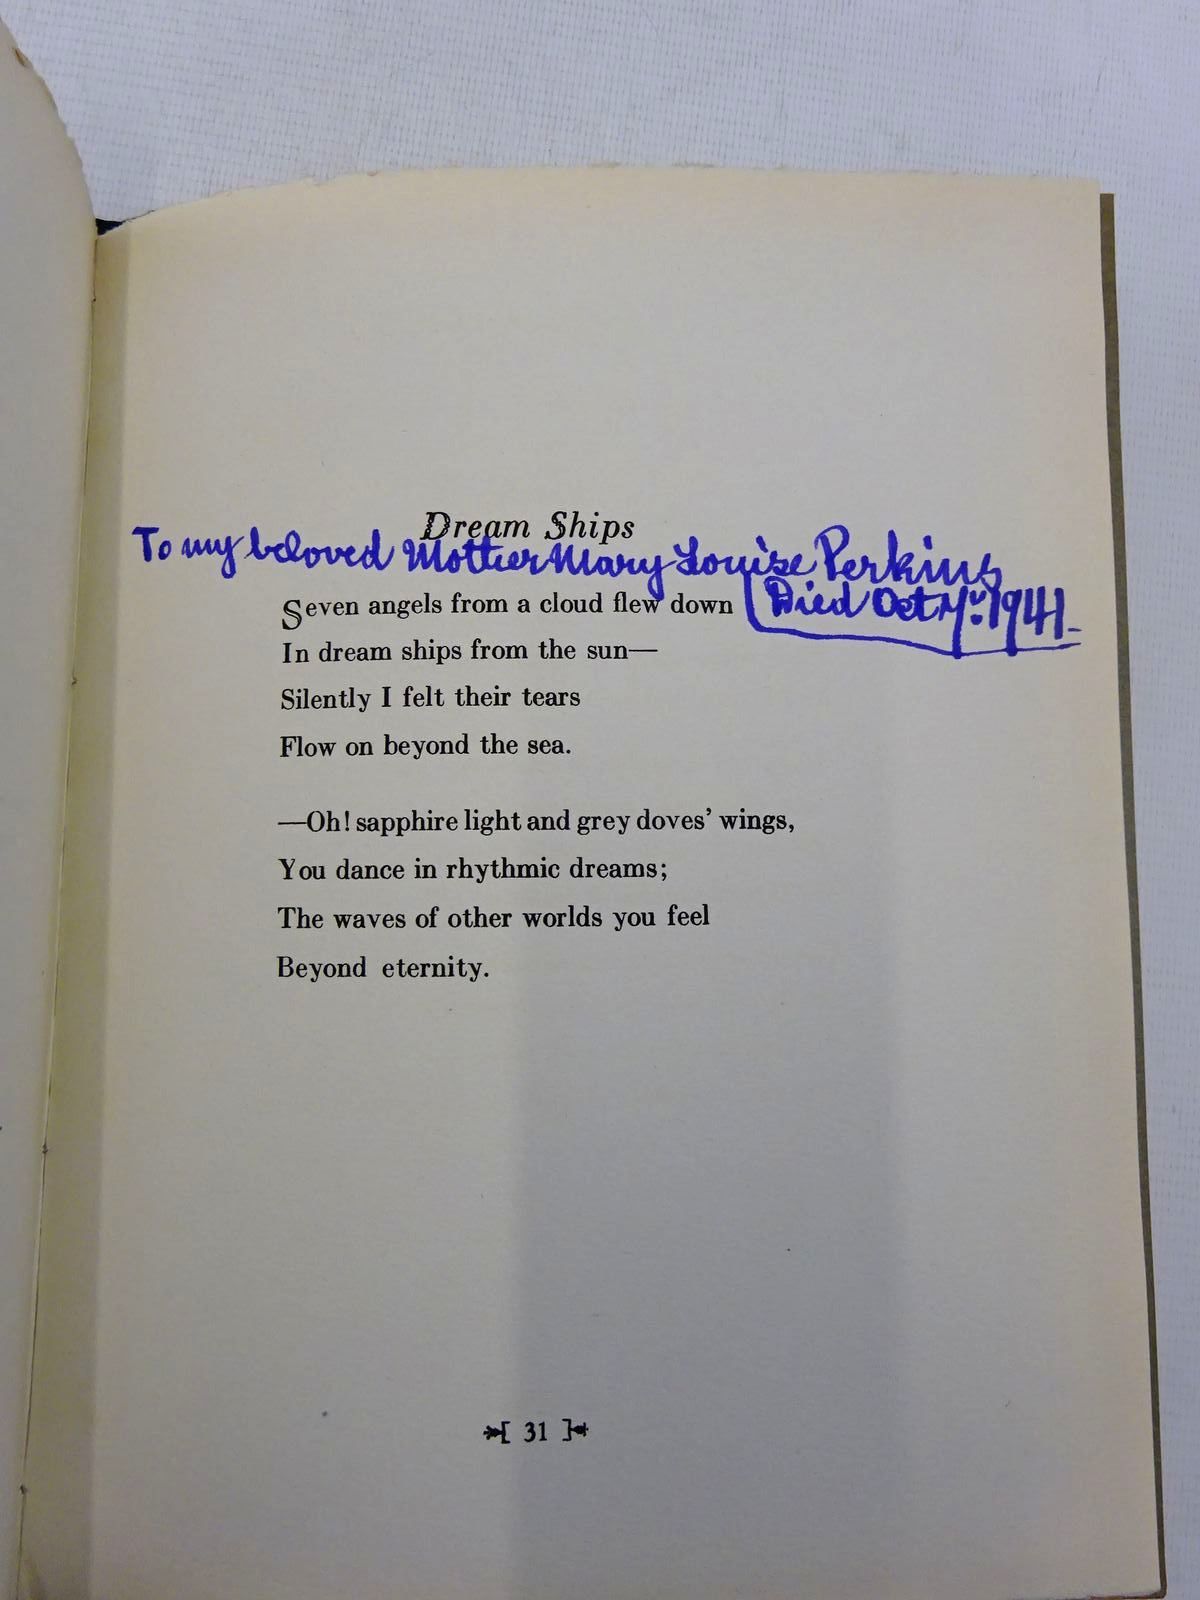 Dream Ships
To my beloved Mother Mary Louise Perkins
Died Oct 1941.
Seven angels from a cloud flew down
In dream ships from the sun—
Silently I felt their tears
Flow on beyond the sea.
—Oh! sapphire light and grey doves' wings,
You dance in rhythmic dreams;
The waves of other worlds you feel
Beyond eternity.
[ 31 ]